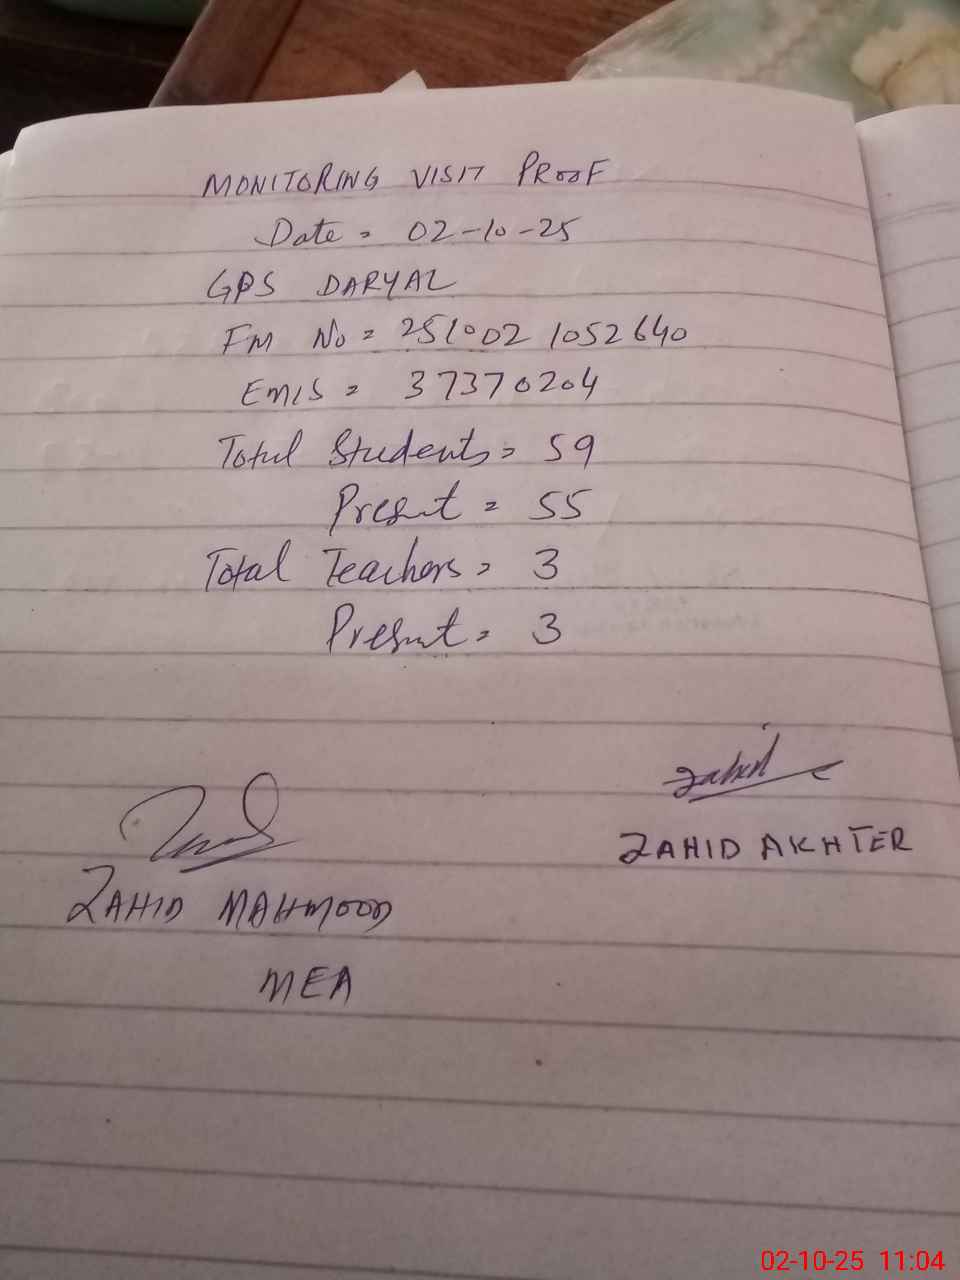 MONITORING VISIT PROOF
Date = 02-10-25
GPS DARYAL
FM No = 251002 1052640
EMIS = 37370204
Total Students = 59
Present = 55
Total Teachers = 3
Present = 3
Zahid
ZAHID AKHTER
ZAHID MAHMOOD
MEA
02-10-25 11:04